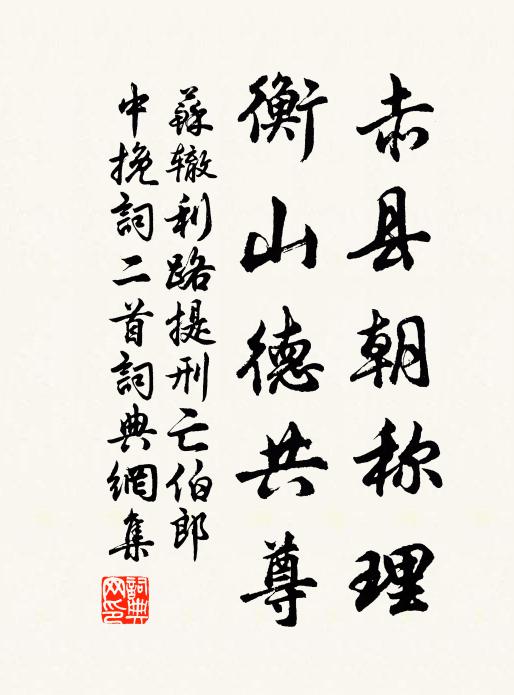 赤县朝称理
衡山德共尊
蘇辙利路提刑亡伯郎
中挽詞二首詞典網集
詞典
网印